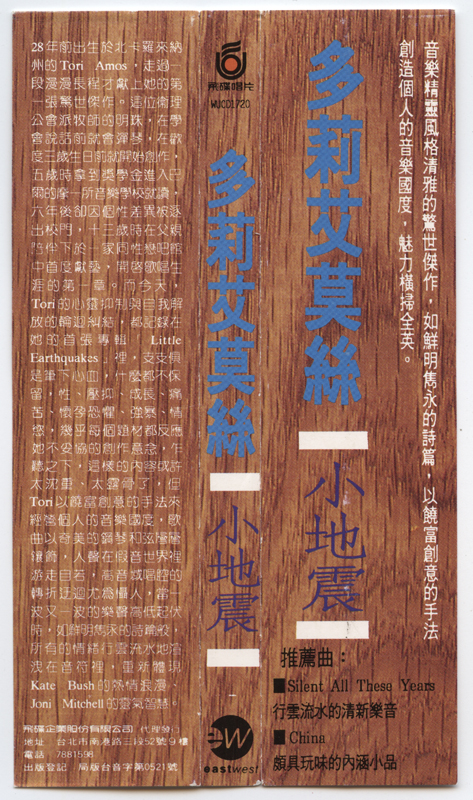 28年前出生於北卡羅來納
州的Tori Amos，走過一
段漫漫長程才獻上她的第
一張驚世傑作。這位衛理
公會派牧師的明珠，在學
會說話前就會彈琴，在歡
度三歲生日前就開始創作，
五歲時拿到獎學金進入巴
爾的摩一所音樂學校就讀，
六年後卻因個性差異被逐
出校門，十三歲時在父親
陪伴下於一家同性戀吧館
中首度獻藝，開啓歌唱生
涯的第一章。而今天，
Tori的心靈抑制與自我解
放的輪迴糾結，都記錄在
她的首張專輯「Little
Earthquakes」裡，支支俱
是筆下心血，什麼都不保
留，性、壓抑、成長、痛
苦、懷孕恐懼、強暴、情
慾，幾乎每個題材都反應
她不妥協的創作意念，乍
聽之下，這樣的內容或許
太沈重、太露骨了，但
Tori以饒富創意的手法來
經營個人的音樂國度，歌
曲以奇美的鋼琴和弦層層
鑲飾，人聲在假音世界裡
游走自若，高音域唱腔的
轉折迂迴尤為懾人，當一
波又一波的樂聲高低起伏
時，如鮮明雋永的詩篇般，
所有的情緒行雲流水地
洩在音符裡，重新體現
Kate Bush的熱情浪漫、
Joni Mitchell的靈氣智慧。
飛碟企業股份有限公司（代理發行）
地址 台北市南港路三段52號9樓
電話 7881598
出版登記 局版台音字第0521號
飛碟唱片
WUC01720
多莉艾莫絲
小地震
eW
eastwest
音樂精靈風格清雅的驚世傑作，如鮮明雋永的詩篇，以饒富創意的手法
創造個人的音樂國度，魅力橫掃全英。
多莉艾莫絲
小地震
推薦曲：
■Silent All These Years
行雲流水的清新樂音
■China
頗具玩味的內涵小品